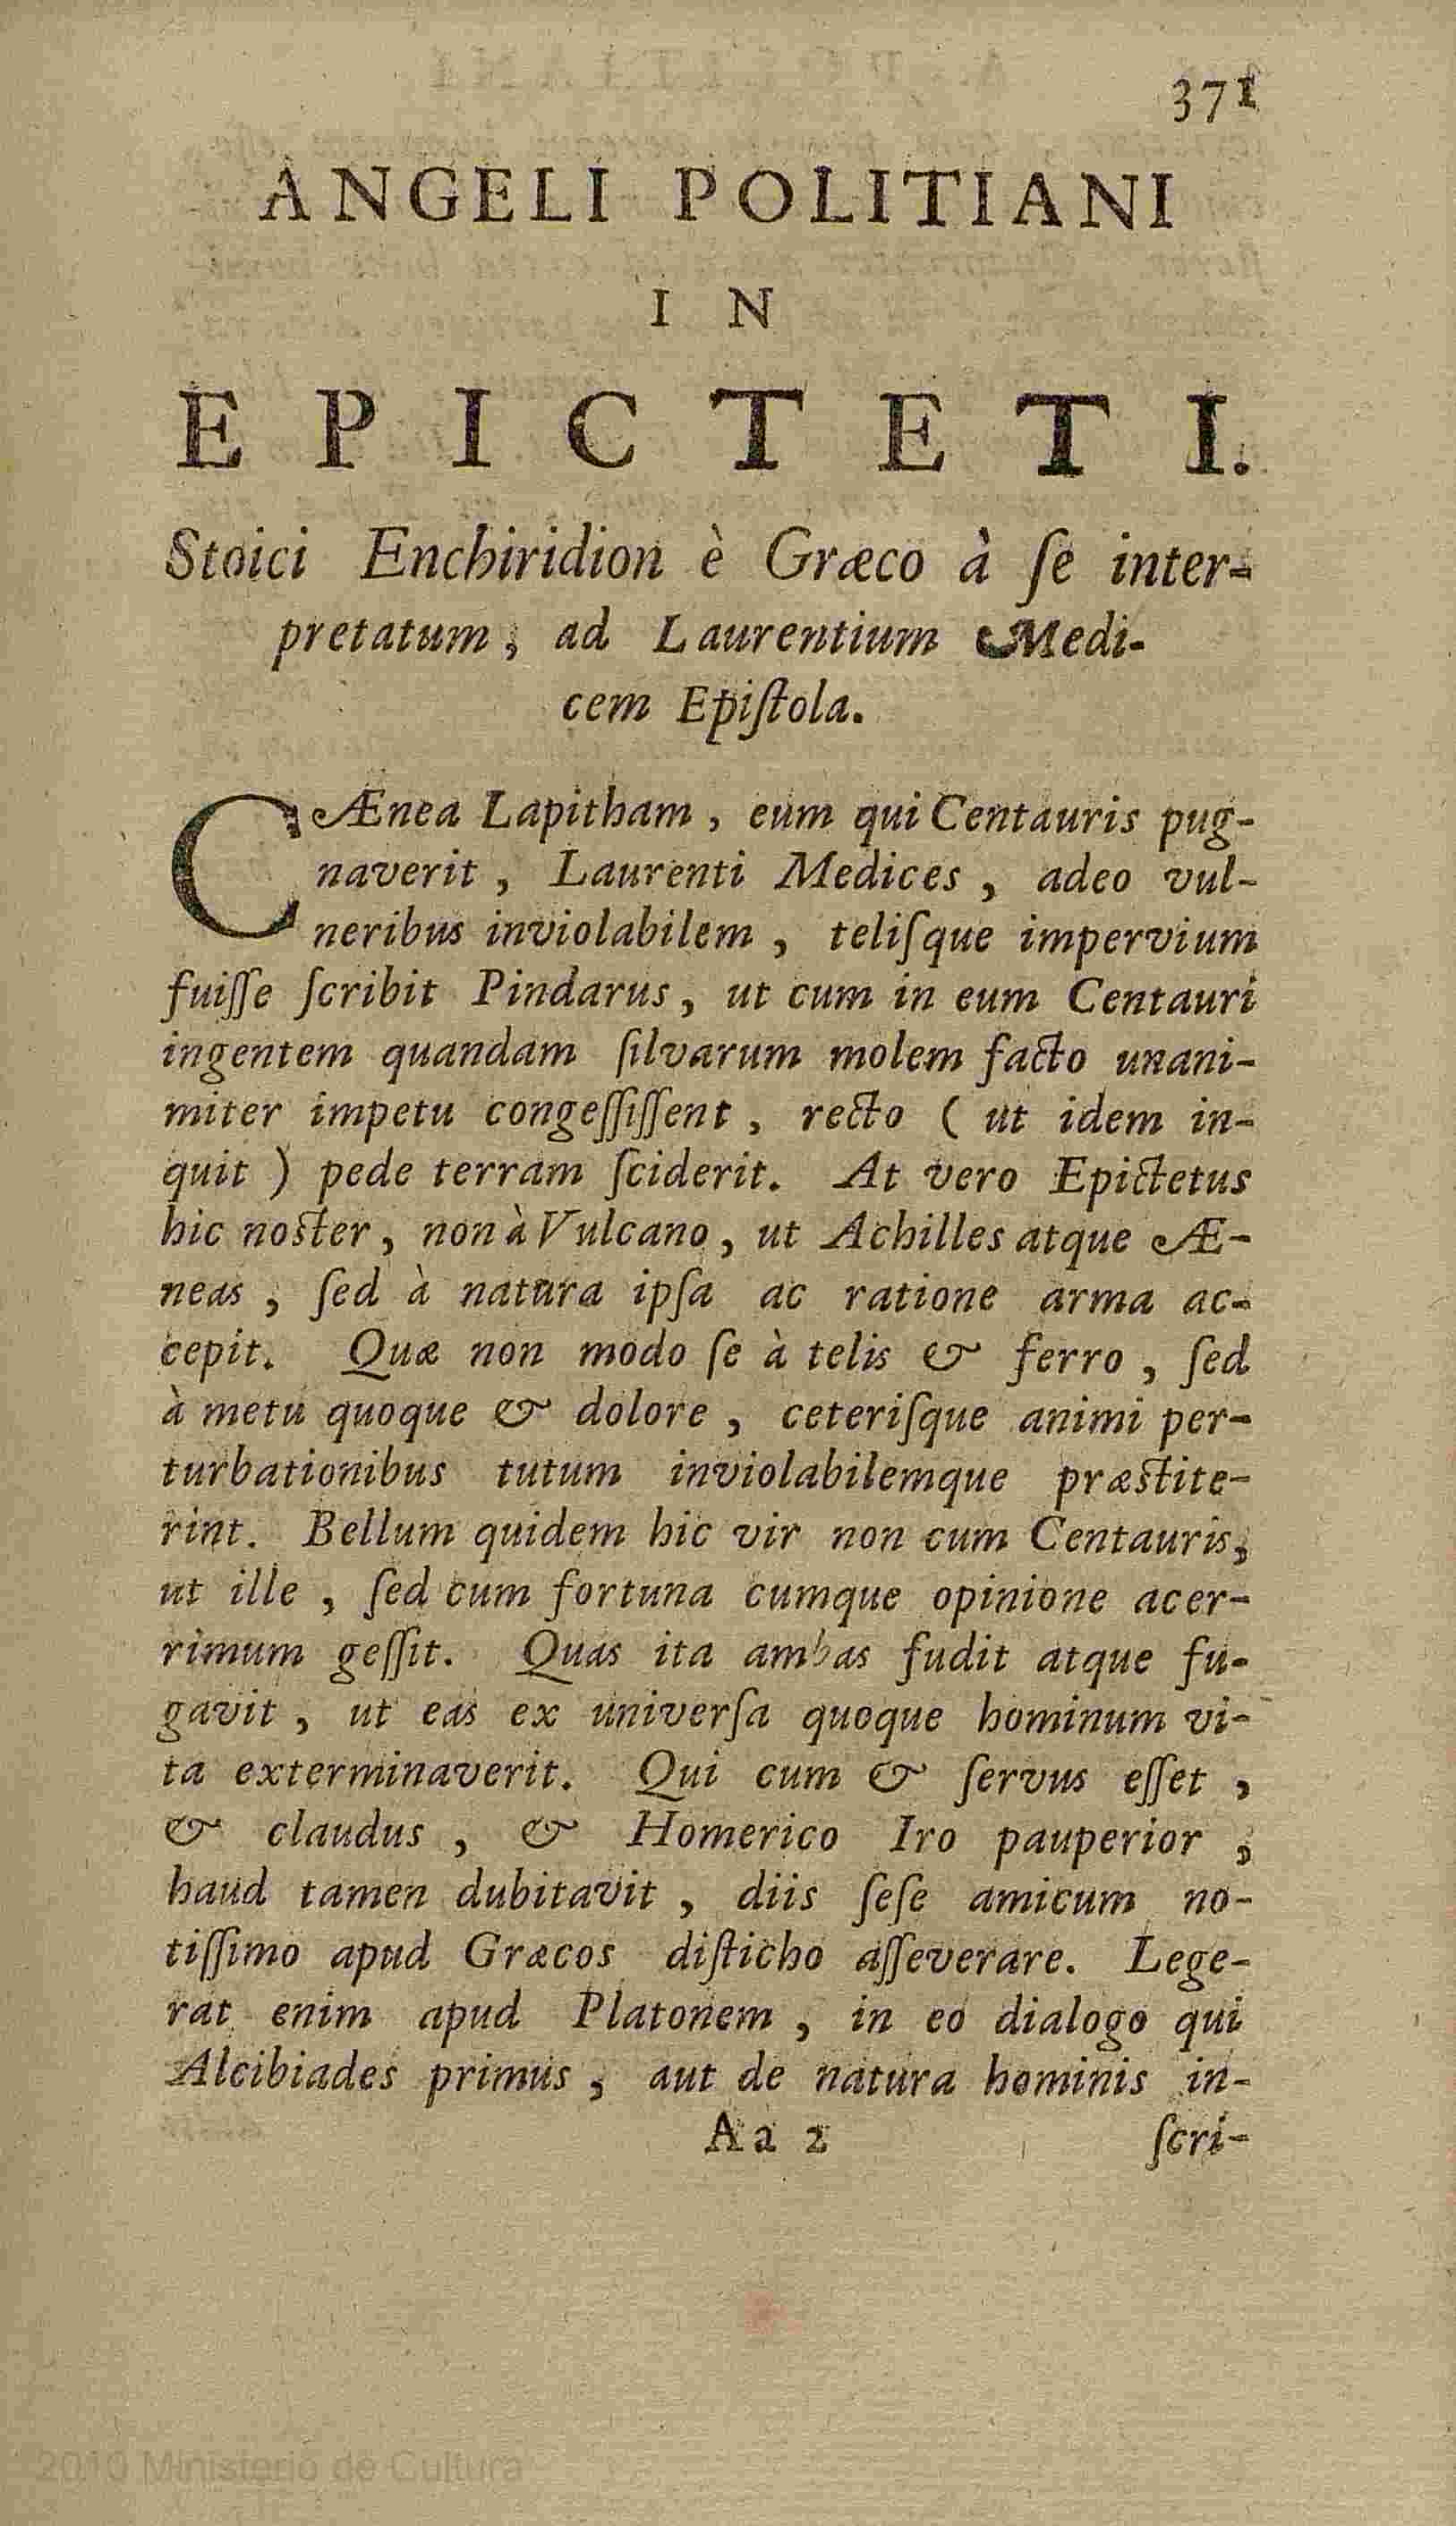 371
ANGELI POLITIANI
IN
EPICTETI.
Stoici Enchiridion è Græco à ſe inter-
pretatum, ad Laurentium Medi-
cem Epiſtola.
CÆnea Lapitham, eum qui Centauris pug-
naverit, Laurenti Medices, adeo vul-
neribus inviolabilem, teliſque impervium
fuiſſe ſcribit Pindarus, ut cum in eum Centauri
ingentem quandam ſilvarum molem facto unani-
miter impetu congeſſiſſent, recto ( ut idem in-
quit ) pede terram ſciderit. At vero Epictetus
hic noſter, non à Vulcano, ut Achilles atque Æ-
neas, ſed à natura ipſa ac ratione arma ac-
cepit. Quæ non modo ſe à telis & ferro, ſed
à metu quoque & dolore, ceteriſque animi per-
turbationibus tutum inviolabilemque præſtite-
rint. Bellum quidem hic vir non cum Centauris,
ut ille, ſed cum fortuna cumque opinione acer-
rimum geſſit. Quas ita ambas fudit atque fu-
gavit, ut eas ex univerſa quoque hominum vi-
ta exterminaverit. Qui cum & ſervus eſſet,
& claudus, & Homerico Iro pauperior,
haud tamen dubitavit, diis ſeſe amicum no-
tiſſimo apud Græcos diſticho aſſeverare. Lege-
rat enim apud Platonem, in eo dialogo qui
Alcibiades primus, aut de natura hominis in-
Aa 2 ſcri-
2010 Ministerio de Cultura